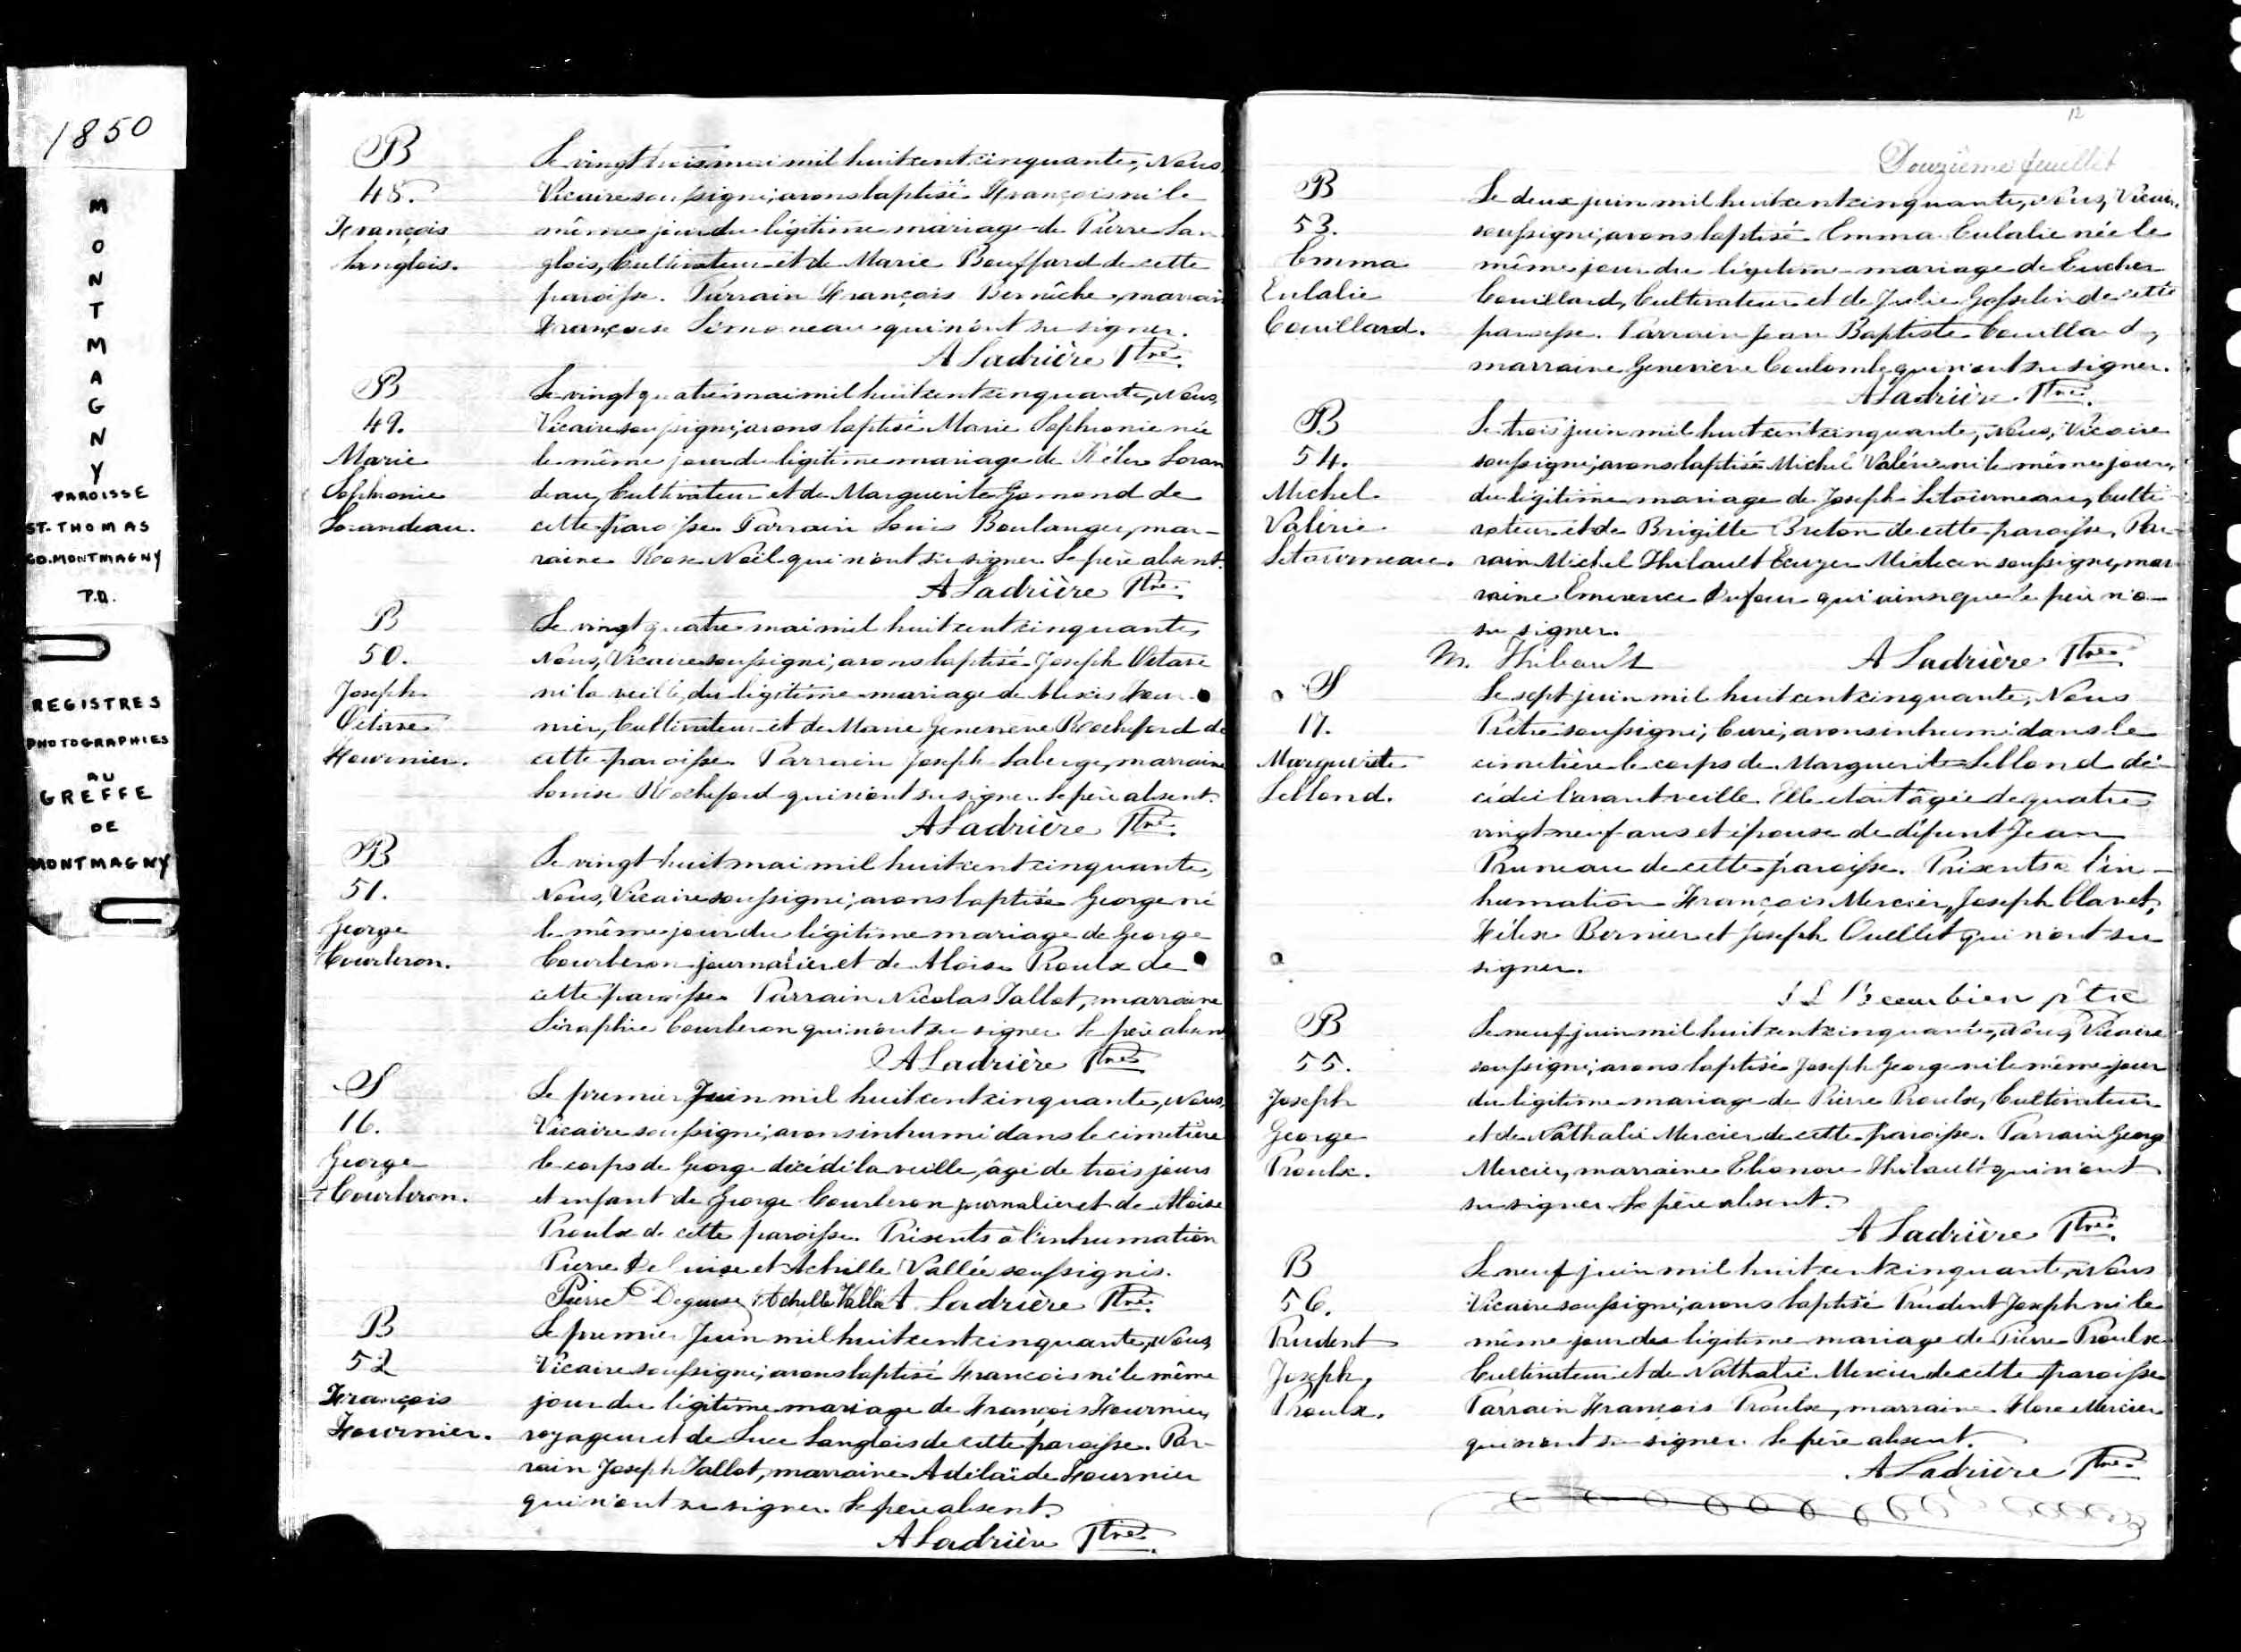 1850
MONTMAGNY
PAROISSE
ST. THOMAS
CO. MONTMAGNY
P.Q.
REGISTRES
PHOTOGRAPHIES
AU
GREFFE
DE
MONTMAGNY
B
48.
François
Langlois.
Le vingt trois mai mil huit cent cinquante, Nous,
Vicaire soussigné, avons baptisé François né le
même jour du légitime mariage de Pierre Lan
glois, Cultivateur et de Marie Bouffard de cette
paroisse. Parrain François Bernîche, marrain
Françoise Simoneau qui n'ont su signer.
A Ladrière Ptre.
B
49.
Marie
Sophronie
Lorandeau.
Le vingt quatre mai mil huit cent cinquante, Nous,
Vicaire soussigné, avons baptisé Marie Sophronie née
le même jour du légitime mariage de Félix Loran
deau, Cultivateur et de Marguerite Gamond de
cette paroisse Parrain Louis Boulanger, mar-
raine Rose Noël qui n'ont su signer Le père absent.
A Ladrière Ptre.
B
50.
Joseph
Octave
Fournier.
Le vingt quatre mai mil huit cent cinquante,
Nous, Vicaire soussigné, avons baptisé Joseph Octave
né la veille, du légitime mariage de Alexis Four
nier, Cultivateur et de Marie Genevieve Rocheford de
cette paroisse Parrain Joseph Laberge, marraine
Louise Rocheford qui n'ont su signer. Le père absent.
A Ladrière Ptre.
B
51.
George
Courberon.
Le vingt huit mai mil huit cent cinquante,
Nous, Vicaire soussigné, avons baptisé George né
le même jour du légitime mariage de George
Courberon journalier et de Aloise Proulx de
cette paroisse Parrain Nicolas Tallot, marraine
Séraphie Courberon qui n'ont su signer Le père absen
A Ladrière Ptre
S
16.
George
Courberon.
Le premier Juin mil huit cent cinquante, Nous,
Vicaire soussigné, avons inhumé dans le cimetière
le corps de George décédé la veille, âgé de trois jours
et enfant de George Courberon journalier et de Aloise
Proulx de cette paroisse. Présents à l'inhumation
Pierre Deguise et Achille Vallée soussignés.
Pierre Deguise Achille Vallé A Ladrière Ptre.
B
52
François
Fournier.
Le premier Juin mil huit cent cinquante, Nous,
Vicaire soussigné, avons baptisé François né le même
jour du légitime mariage de François Fournier,
voyageur et de Luce Langlois de cette paroisse. Par-
rain Joseph Tallot, marraine Adélaïde Fournier
qui n'ont su signer. Le père absent.
A Ladrière Ptre.
12
Douzième feuillet
B
53.
Emma
Eulalie
Couillard.
Le deux juin mil huit cent cinquante, Nous, Vicair.
soussigné, avons baptisé Emma Eulalie née le
même jour du légitime mariage de Eucher
Couillard, Cultivateur et de Julie Gosselin de cette
paroisse. Parrain Jean Baptiste Couillard,
marraine Genevieve Coulombe qui n'ont su signer.
A Ladrière Ptre.
B
54.
Michel
Valérie
Letourneau.
Le trois juin mil huit cent cinquante, Nous, Vicaire
soussigné, avons baptisé Michel Valérie né le même jour,
du légitime mariage de Joseph Letourneau, Culti
vateur et de Brigitte Breton de cette paroisse, Par-
rain Michel Thibault Ecuyer Médecin soussigné, mar
raine Emerence Dufour qui ainsi que le père n'a
su signer.
M. Thibault A Ladrière Ptre
S
17.
Marguerite
Leblond.
Le sept juin mil huit cent cinquante, Nous
Prêtre soussigné, Curé, avons inhumé dans le
cimetière le corps de Marguerite Leblond dé-
cédée l'avant veille. Elle était âgée de quatre
vingt neuf ans et épouse de défunt Jean
Pruneau de cette paroisse. Présents à l'in-
humation François Mercier, Joseph Clavet,
Félix Bernier et Joseph Ouellet qui n'ont su
signer.
J L Beaubien ptre
B
55.
Joseph
George
Proulx.
Le neuf juin mil huit cent cinquante, Nous, Vicaire
soussigné, avons baptisé Joseph George né le même jour
du légitime mariage de Pierre Proulx, Cultivateur
et de Nathalie Mercier de cette paroisse. Parrain Georg
Mercier, marraine Elionore Thibault qui n'ont
su signer Le père absent.
A Ladrière Ptre.
B
56.
Prudent
Joseph,
Proulx.
Le neuf juin mil huit cent cinquante, Nous
Vicaire soussigné, avons baptisé Prudent Joseph né le
même jour du légitime mariage de Pierre Proulx
Cultivateur et de Nathalie Mercier de cette paroisse
Parrain François Proulx, marraine Flore Mercier
qui n'ont su signer. Le père absent.
A Ladrière Ptre.